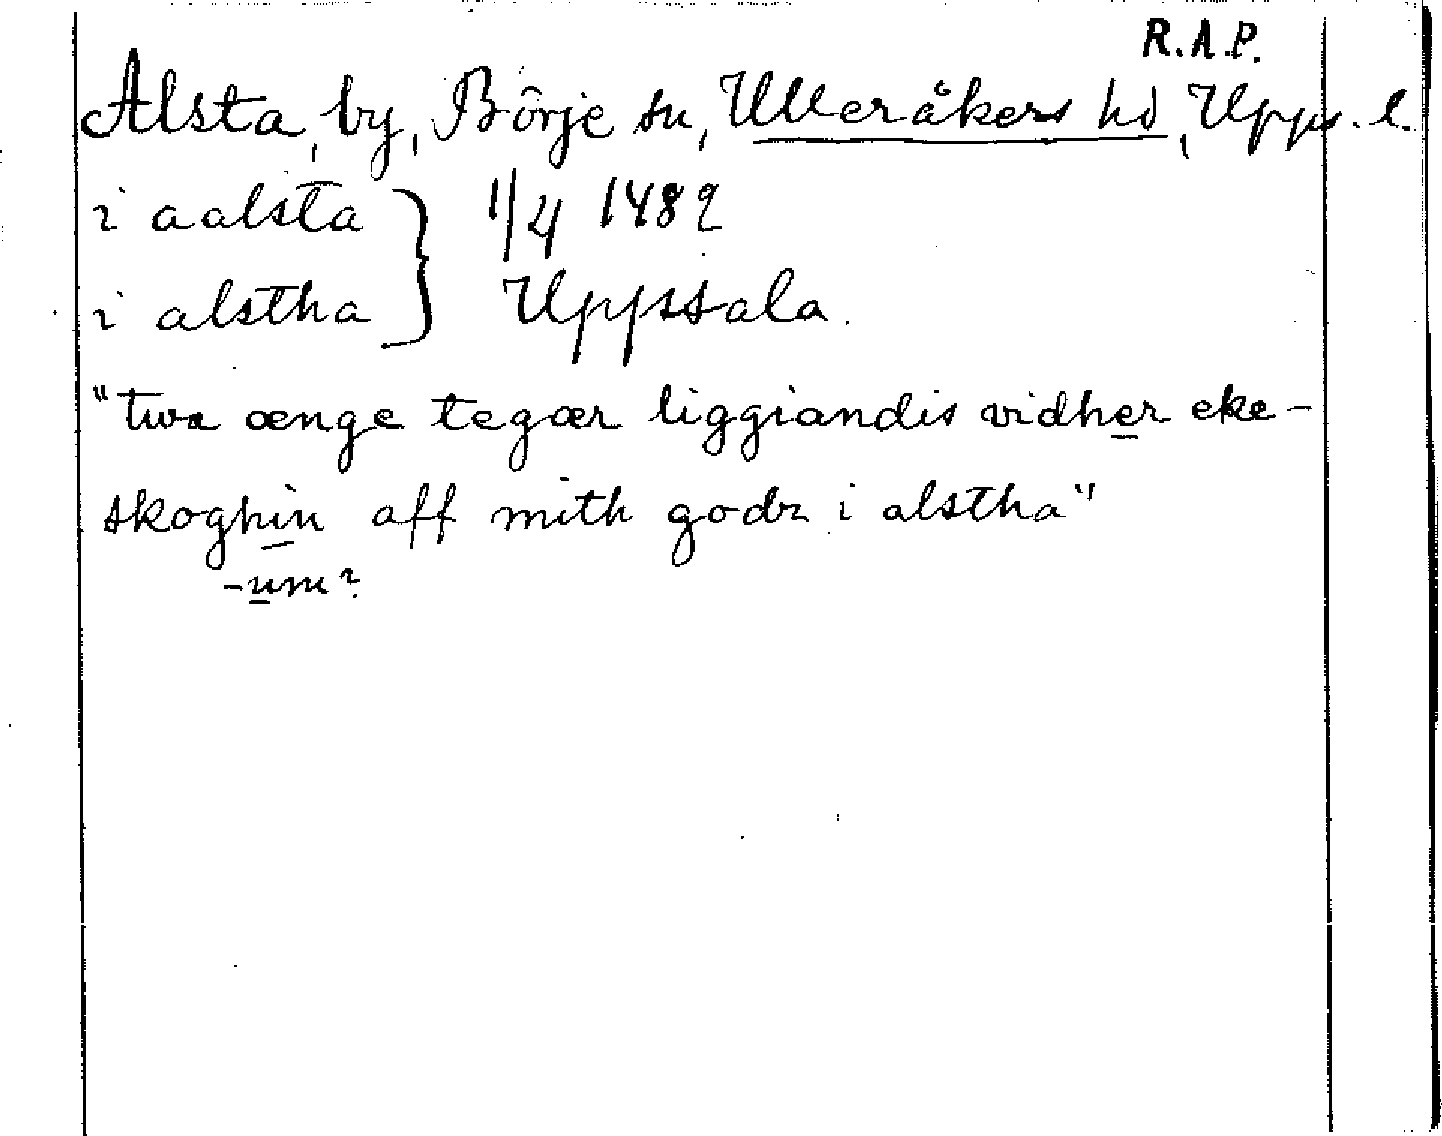 R.A.P.
Alsta, by, Börje sn, Ulleråkers hd, Upps. l.
i aalsta } 1/4 1482
i alstha } Uppsala.
"twa ænge tegær liggiandis vidher eke-
skoghin aff mith godz i alstha"
-um?